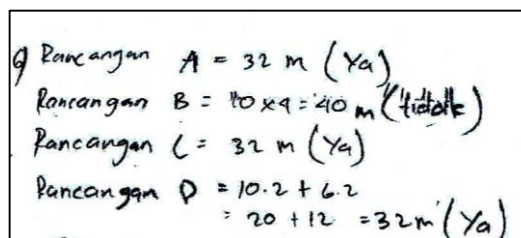 9) Rancangan A = 32 m (Ya)
Rancangan B = 10 x 4 = 40 m (tidak)
Rancangan C = 32 m (Ya)
Rancangan D = 10.2 + 6.2
= 20 + 12 = 32 m (Ya)